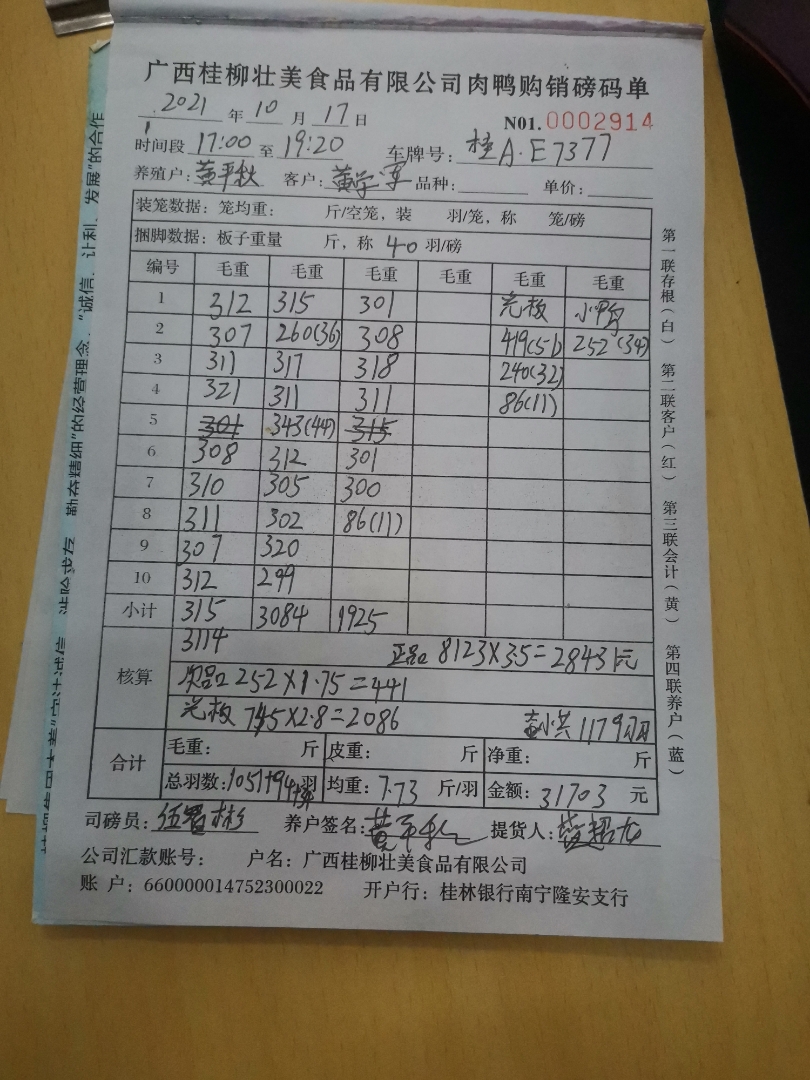 广西桂柳壮美食品有限公司肉鸭购销磅码单
2021 年 10 月 17 日
N01. 0002914
时间段 17:00 至 19:20 车牌号: 桂A·E7377
养殖户: 黄平秋 客户: 黄学军 品种: 单价:
装笼数据: 笼均重: 斤/空笼, 装 羽/笼, 称 笼/磅
捆脚数据: 板子重量 斤, 称 40 羽/磅
编号 毛重 毛重 毛重 毛重 毛重 毛重
1 312 315 301 光板 小鸭
2 307 260(36) 308 419(51) 252(34)
3 311 317 318 240(32)
4 321 311 311 86(11)
5 301 343(44) 315
6 308 312 301
7 310 305 300
8 311 302 86(11)
9 307 320
10 312 299
小计 315 3084 1925
3114
正品 8123×3.5=28431元
核算 次品 252×1.75=441
光板 745×2.8=2086
1179羽
合计 毛重: 斤 皮重: 斤 净重: 斤
总羽数: 1051+94 羽 均重: 7.73 斤/羽 金额: 31703 元
司磅员: 养户签名: 黄平秋 提货人:
公司汇款账号: 户名: 广西桂柳壮美食品有限公司
账 户: 660000014752300022 开户行: 桂林银行南宁隆安支行
第一联存根(白) 第二联客户(红) 第三联会计(黄) 第四联养户(蓝)
的经营理念、“诚信、计利、发展”的合作